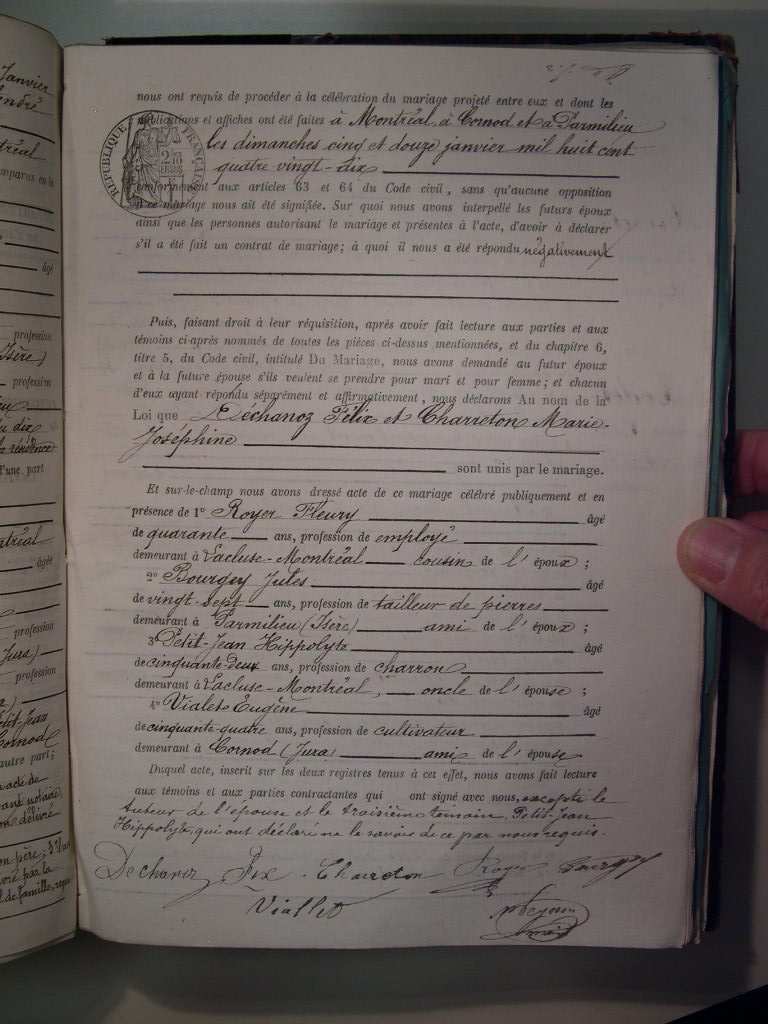 Janvier
André
Montréal
comparus en la
âgé
profession
(Isère)
profession
dix
résidence
d'une part
Montréal
âgé
profession
Jura)
profession
Petit-Jean
Cornod
autre part;
acte de
notaire
délivré
père; 3°
par la
de famille,
nous ont requis de procéder à la célébration du mariage projeté entre eux et dont les
publications et affiches ont été faites à Montréal, à Cornod et à Parmilieu
les dimanches cinq et douze janvier mil huit cent
quatre vingt-dix
conformément aux articles 63 et 64 du Code civil, sans qu'aucune opposition
à ce mariage nous ait été signifiée. Sur quoi nous avons interpellé les futurs époux
ainsi que les personnes autorisant le mariage et présentes à l'acte, d'avoir à déclarer
s'il a été fait un contrat de mariage; à quoi il nous a été répondu négativement
RÉPUBLIQUE FRANÇAISE
2 10
Puis, faisant droit à leur réquisition, après avoir fait lecture aux parties et aux
témoins ci-après nommés de toutes les pièces ci-dessus mentionnées, et du chapitre 6,
titre 5, du Code civil, intitulé Du Mariage, nous avons demandé au futur époux
et à la future épouse s'ils veulent se prendre pour mari et pour femme; et chacun
d'eux ayant répondu séparément et affirmativement, nous déclarons Au nom de la
Loi que Déchanoz Félix et Charreton Marie-
Joséphine
sont unis par le mariage.
Et sur-le-champ nous avons dressé acte de ce mariage célébré publiquement et en
présence de 1° Royer Fleury âgé
de quarante ans, profession de employé
demeurant à Lacluse-Montréal cousin de l'époux;
2° Bourgey Jules âgé
de vingt-sept ans, profession de tailleur de pierres
demeurant à Parmilieu (Isère) ami de l'époux;
3° Petit-Jean Hippolyte âgé
de cinquante-deux ans, profession de charron
demeurant à Lacluse-Montréal, oncle de l'épouse;
4° Vialet Eugène âgé
de cinquante-quatre ans, profession de cultivateur
demeurant à Cornod (Jura) ami de l'épouse
Duquel acte, inscrit sur les deux registres tenus à cet effet, nous avons fait lecture
aux témoins et aux parties contractantes qui ont signé avec nous, excepté le
tuteur de l'épouse et le troisième témoin, Petit-Jean
Hippolyte, qui ont déclaré ne le savoir de ce par nous requis.
Dechanoz Fix Charreton Royer Bourgey
Viallet
maire